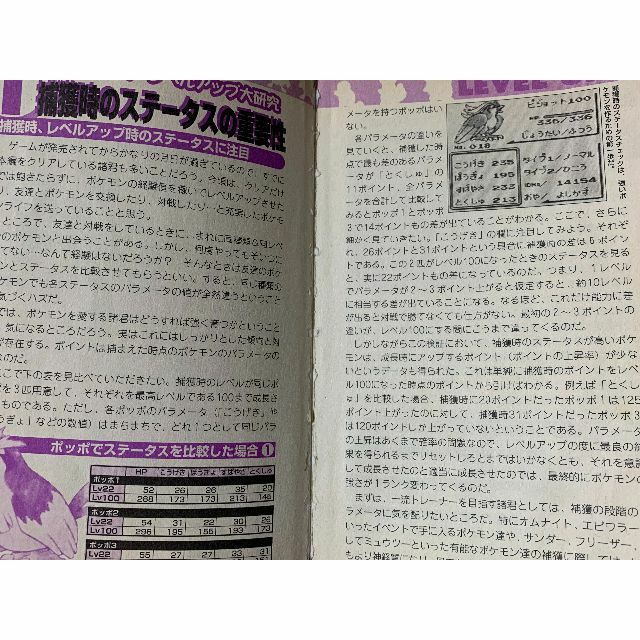 ルアップ大研究
捕獲時のステータスの重要性
捕獲時、レベルアップ時のステータスに注目
ゲームが発売されてからかなりの
をクリアしている諸君も多いことだろう。
では飽きたらずに、ポケモンの経験値を稼いでレベルアップさせた
り、友達とポケモンを交換したり、対戦したり
ンライフを送っていることと思う。
ところで、友達と対戦をしているときに、まれに同種類＆同レベ
のポケモンと出会うことがある。しかし、何度やってもそいつに
てない…なんて経験はないだろうか？　そんなときは友達のポケ
ンとステータスを比較させてもらうといい。すると、同じ種類の
ケモンでも各ステータスのパラメータの値が全然違うということ
気づくハズだ。
では、ポケモンを愛する諸君はどうすれば強く育つかということ
気になるところだろう。実はこれにはしっかりとした傾向と対
が存在する。ポイントは捕まえた時点のポケモンのパラメータの
のだ。
ここで下の表を見比べていただきたい。捕獲時のレベルが同じポ
を3匹用意して、それぞれを最高レベルである100まで成長さ
ものである。ただし、各ポッポのパラメータ（「こうげき」や
ぎょ」などの数値）はまちまちで、どれ1つとして同じパラ
ポッポでステータスを比較した場合❶
HP こうげき ぼうぎょ すばやさ とくしゅ
ポッポ1
Lv22 52 26 26 35 20
Lv100 268 173 173 213 148
ポッポ2
Lv22 54 31 22 30 26
Lv100 296 195 155 193 173
ポッポ3
Lv22 55 33 31
LEVEL
メータを持つポッポはい
ない。
各パラメータの違いを
見ていくと、捕獲した時
点で最も差のあるパラメ
ータが「とくしゅ」の
11ポイント、全パラメ
ータを合計して比較して
みるとポッポ1とポッポ
3で14ポイントもの差が出ていることがわかる。ここで、さらに
細かく見ていきたい。「こうげき」の欄に注目してみよう。それぞ
れ、26ポイントと31ポイントという具合に捕獲時の差は5ポイン
トである。この2匹がレベル100になったときのステータスを見る
と、実に22ポイントもの差になっているのだ。つまり、1レベル
でパラメータが2～3ポイント上がると仮定すると、約10レベル
に相当する差が出ていることになる。なるほど、これだけ能力に差
が出ると対戦で勝てなくても仕方がない。最初の2～3ポイントの
違いが、レベル100にする間にこうまで違ってくるのだ。
しかしながらこの検証において、捕獲時のステータスが高いポケ
モンは、成長時にアップするポイント（ポイントの上昇率）が少な
いというデータも得られた。これは単純に捕獲時のポイントをレベ
ル100になった時点のポイントから引けばわかる。例えば「とくし
ゅ」を比較した場合、捕獲時に20ポイントだったポッポ1は125
ポイント上がったのに対して、捕獲時31ポイントだったポッポ3
は120ポイントしか上がっていないということだ。パラメータ
の上昇はあくまで確率の問題なので、レベルアップの度に最良の結
果を得られるまでリセットしろとまではいかなくとも、それを意識
して成長させたのと適当に成長させたのでは、最終的にポケモンの
強さが1ランク変わってくるのだ。
まずは、一流トレーナーを目指す諸君としては、捕獲の段階の
ラメータに気を配りたいところだ。特にオムナイト、エビワラー
いったイベントで手に入るポケモン達や、サンダー、フリーザー
してミュウツーといった有能なポケモン達の捕獲に際しては、
ピジョット100
336/336
じょうたい/ふつう
No.018
こうげき 235
ぼうぎょ 195
すばやさ 233
とくしゅ 213
タイプ1/ノーマル
タイプ2/ひこう
IDNo/ 14194
おや/よしかず
捕獲時のステータスチェックは、強いポ
ケモンを作るための第一歩だ。